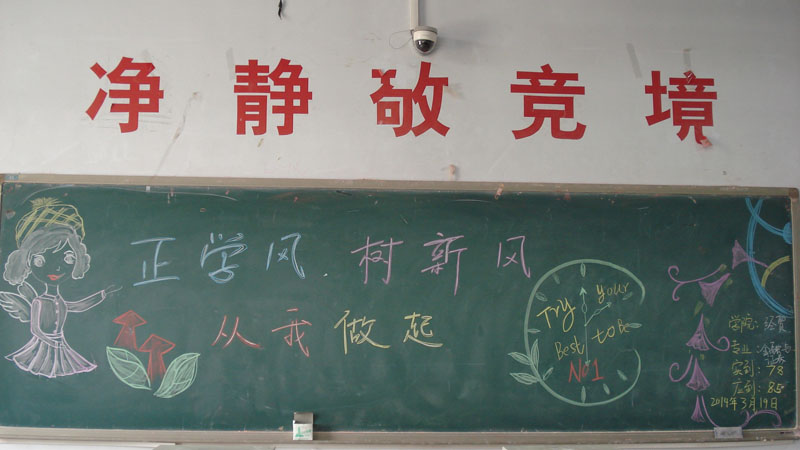 净静敬竞境
正学风 树新风
从我做起
Try your
Best to Be
No1
学院: 经贸
专业:
实到: 78
应到: 85
2019年3月19日